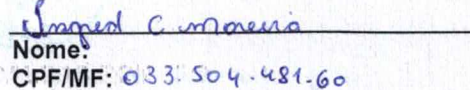 Ingred C Moreira
Nome:
CPF/MF: 033.504.481-60